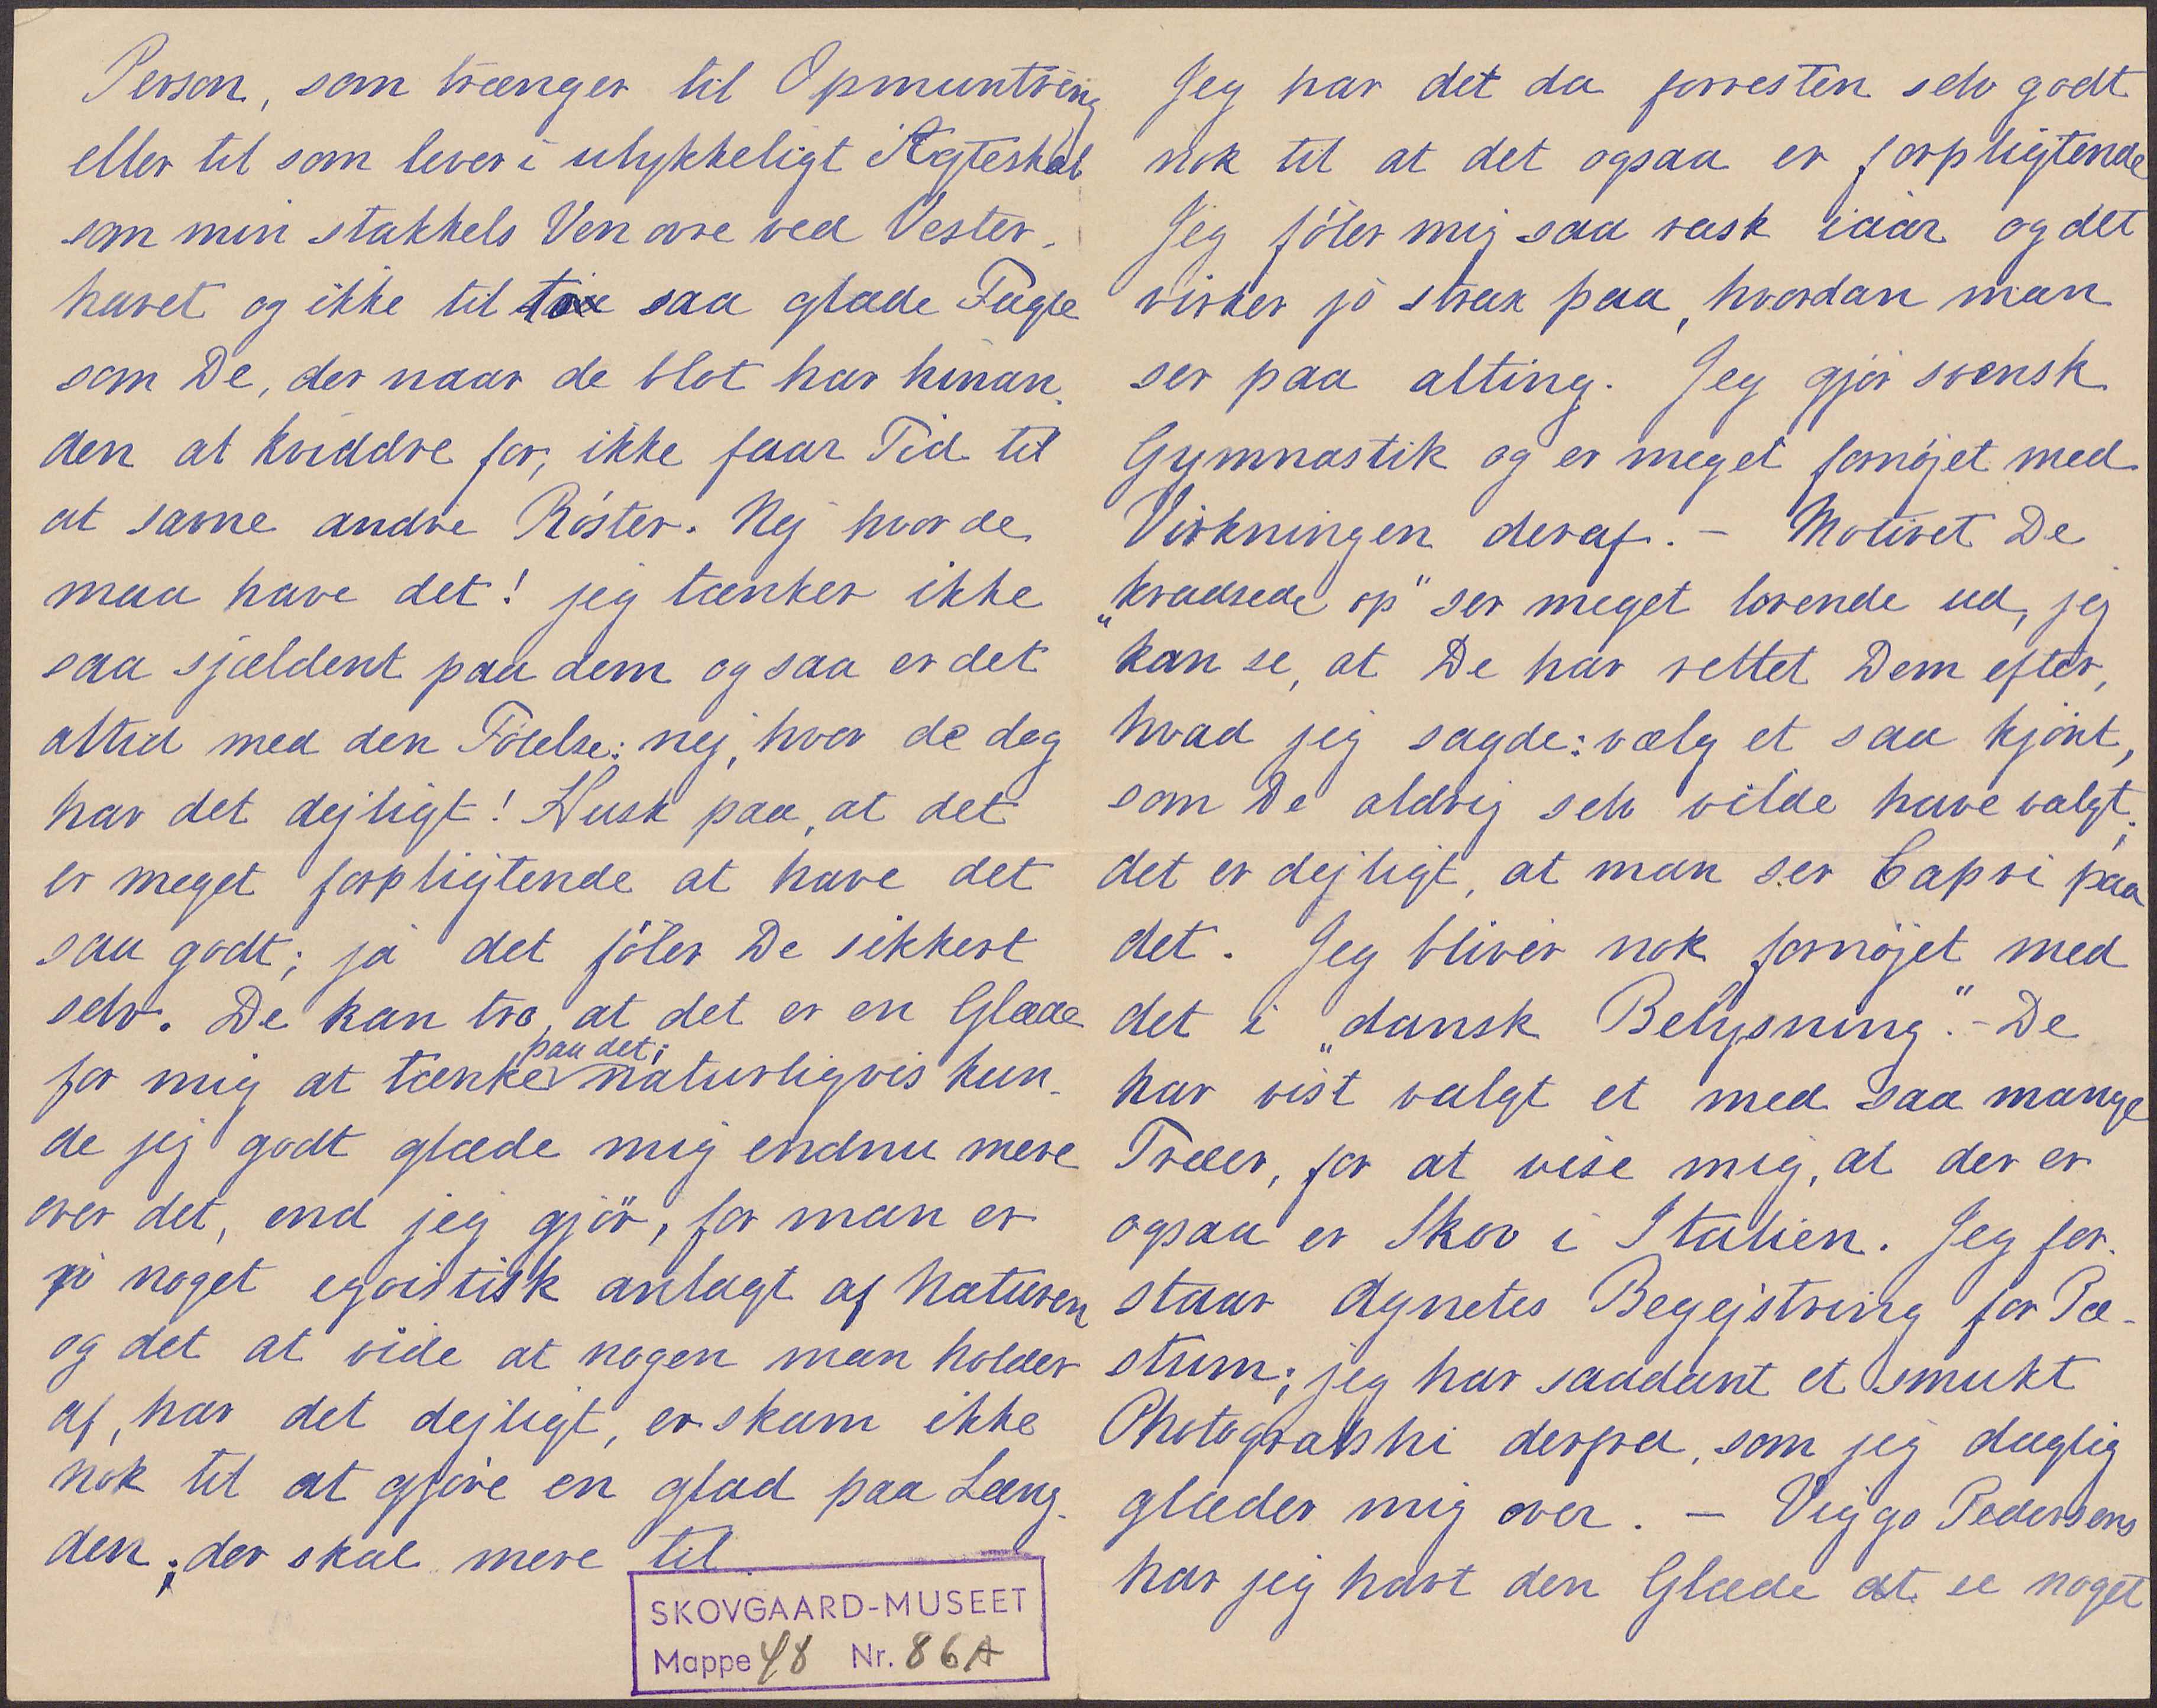 Person, som trænger til Opmuntring
eller til som lever i ulykkeligt Ægteskab
som min stakkels Ven ovre ved Vester-
havet og ikke til saa glade Fugle
som De, der naar de blot har hinan-
den at kviddre for, ikke faar Tid til
at savne andre Röster. Nej hvor de
maa have det! jeg tænker ikke
saa sjældent paa dem og saa er det
altid med den Følelse: nej, hvor de dog
har det dejligt! Husk paa, at det
er meget forpligtende at have det
saa godt; ja det föler De sikkert
selv. De kan tro, at det er en Glæde
for mig at tænke paa det; naturligvis kun-
de jeg godt glæde mig endnu mere
over det, end jeg gjör, for man er
jo noget egoistisk anlagt af Naturen
og det at vide at nogen man holder
af, har det dejligt, er skam ikke
nok til at gjöre en glad paa Læng-
den; der skal mere til
SKOVGAARD-MUSEET
Mappe 48 Nr. 86A
Jeg har det da forresten selv godt
nok til at det ogsaa er forpligtende
Jeg föler mig saa rask iaar og det
virker jo strax paa, hvordan man
ser paa alting. Jeg gjör svensk
Gymnastik og er meget fornöjet med
Virkningen deraf. - Motivet De
"kradsede op" ser meget lovende ud, jeg
kan se, at De har rettet Dem efter,
hvad jeg sagde: vælg et saa kjönt,
som De aldrig selv vilde have valgt;
det er dejligt, at man ser Capri paa
det. Jeg bliver nok fornöjet med
det i "dansk Belysning". - De
har vist valgt et med saa mange
Træer, for at vise mig, at der er
ogsaa er Skov i Italien. Jeg for-
staar Agnetes Begejstring for Pæ-
stum; jeg har saadant et smukt
Photographi derfra, som jeg daglig
glæder mig over. - Viggo Pedersens
har jeg havt den Glæde at se noget